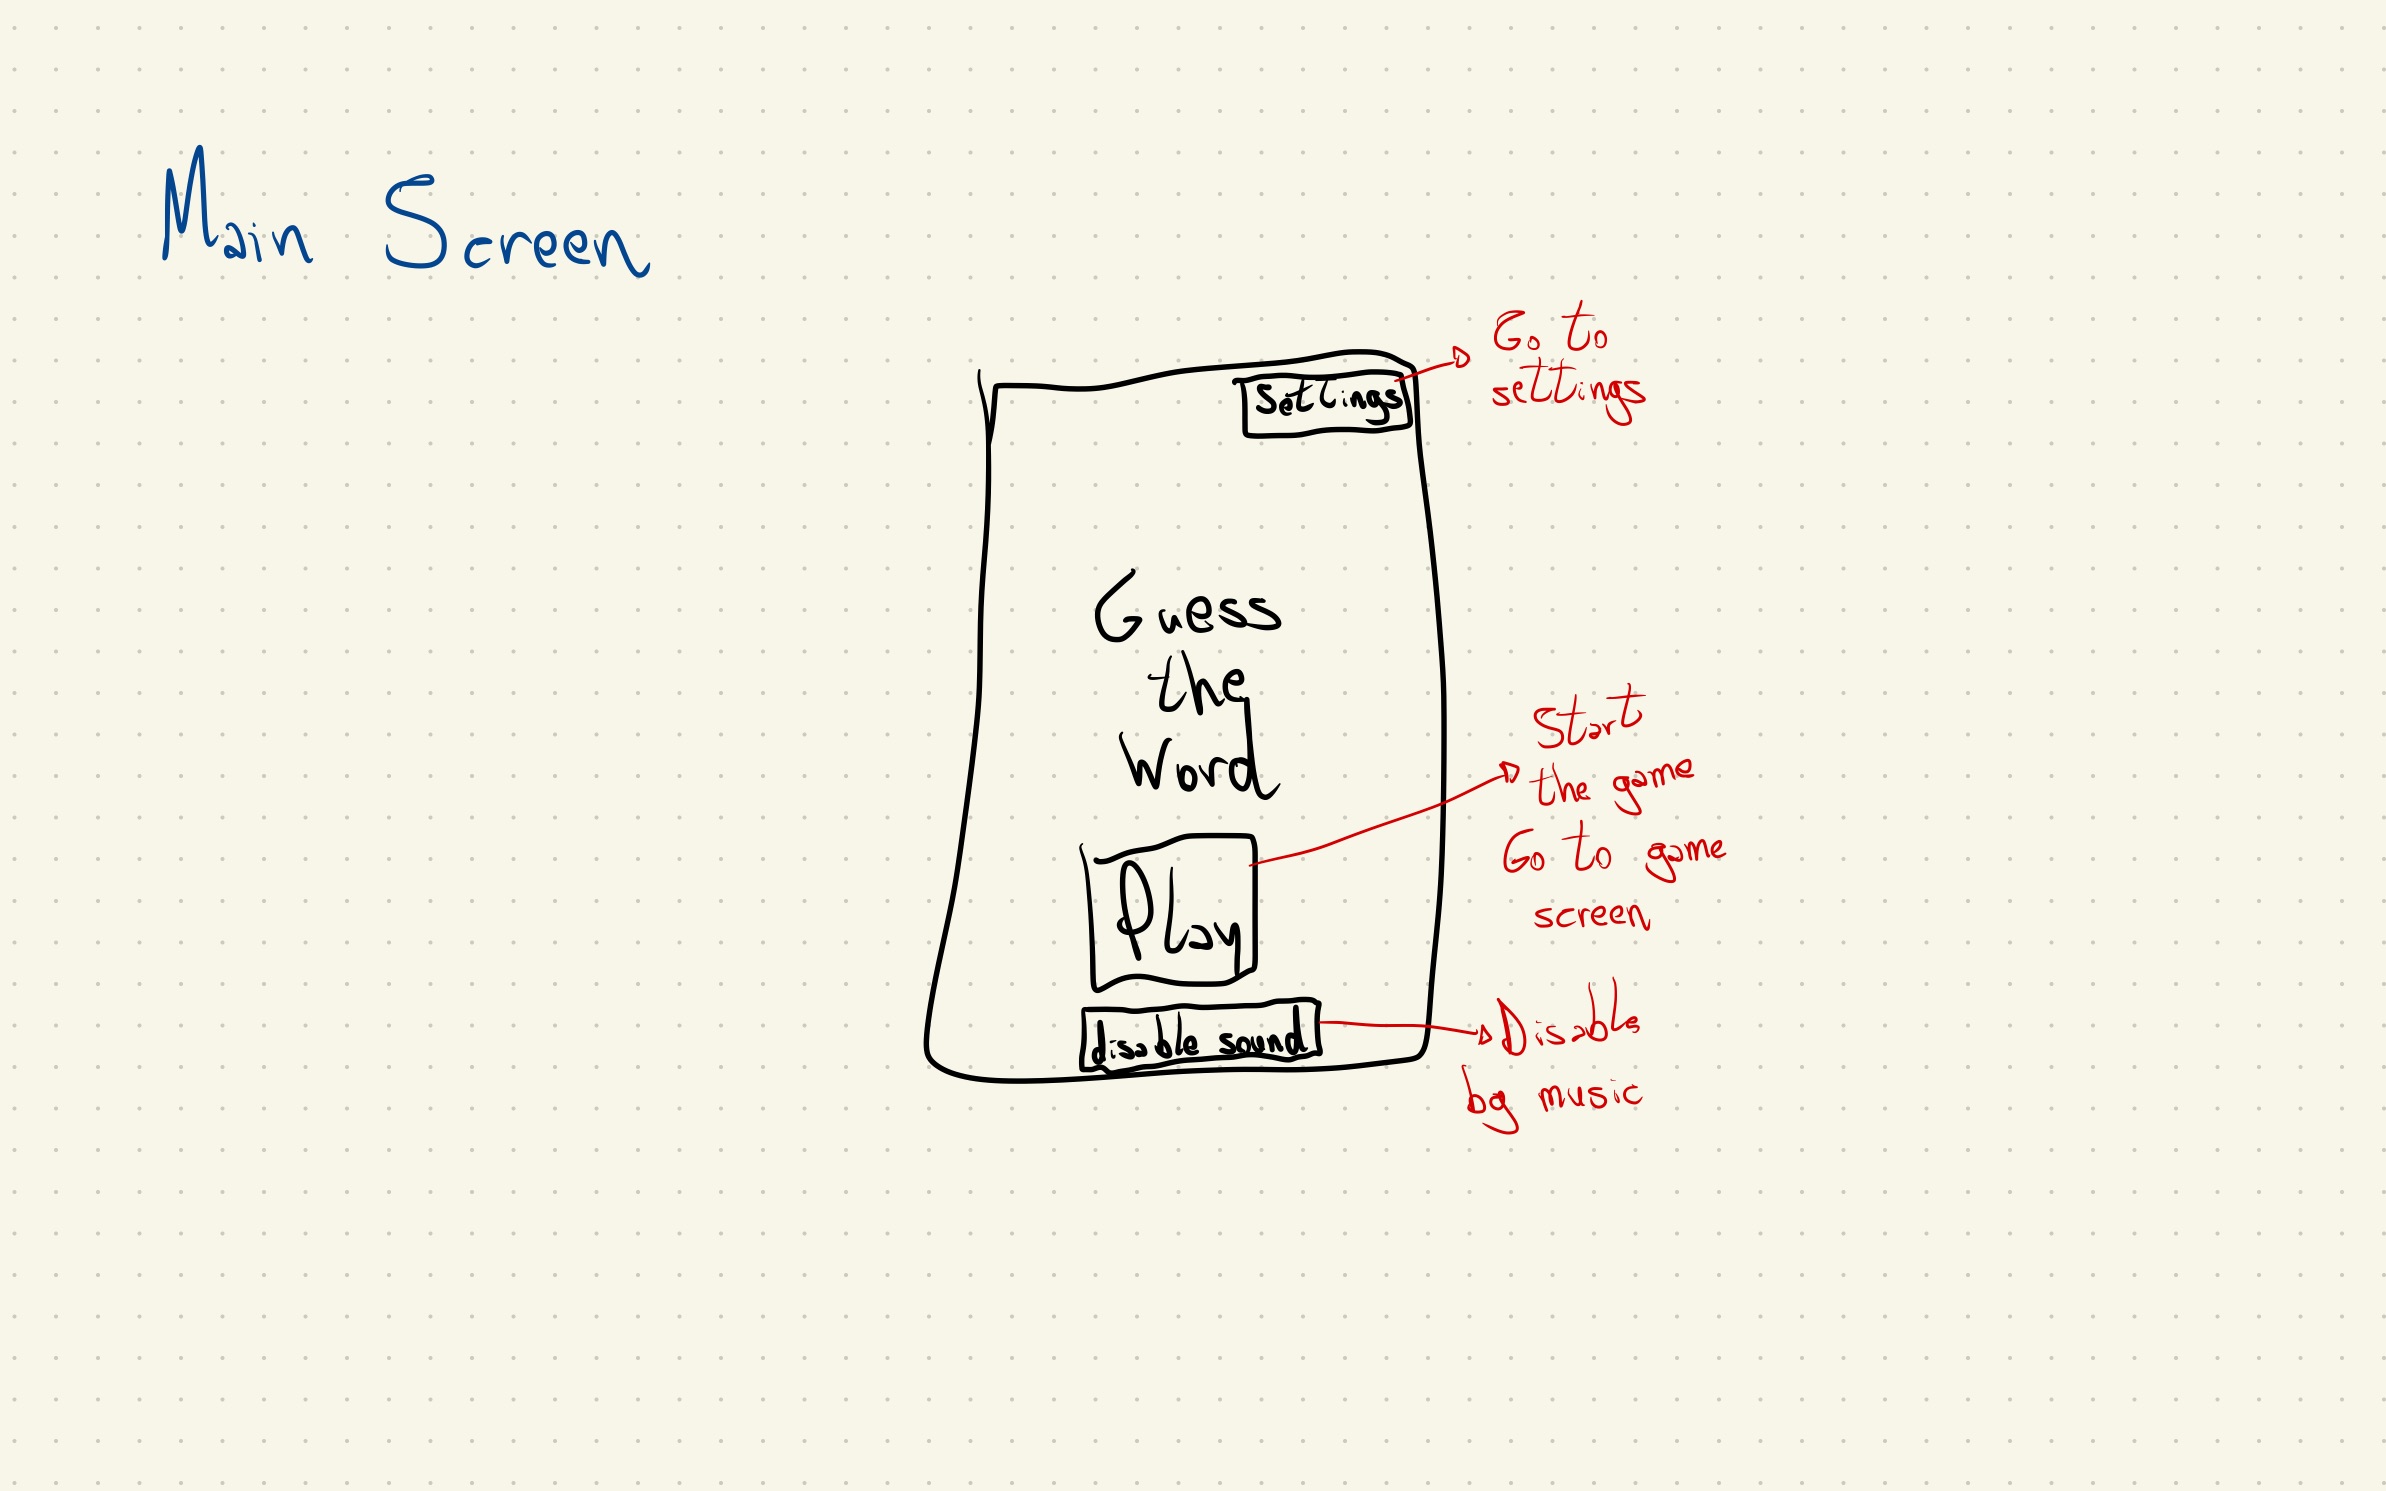 Main Screen
Settings
Go to
settings
Guess
the
Word
Start
the game
Go to game
screen
Play
disable sound
Disable
bg music